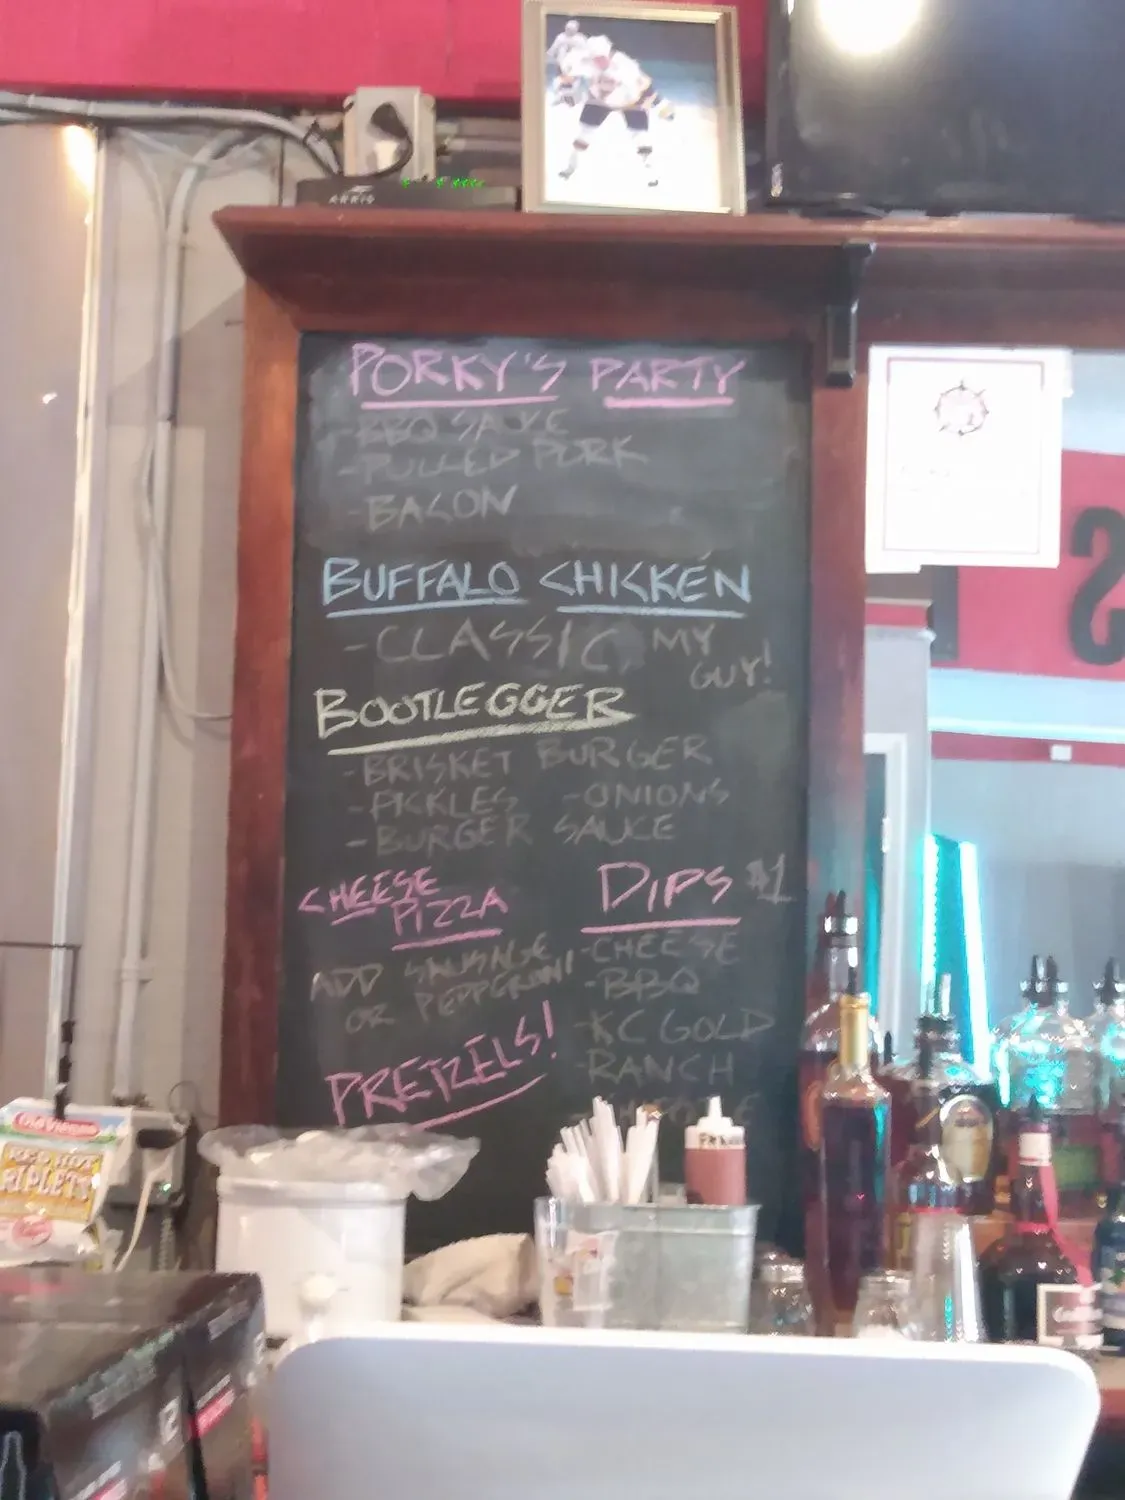 ARRIS
PORKY'S PARTY
-BBQ SAUCE
-PULLED PORK
-BACON
BUFFALO CHICKEN
-CLASSIC, MY
GUY!
BOOTLEGGER
-BRISKET BURGER
-PICKLES -ONIONS
-BURGER SAUCE
CHEESE
PIZZA
ADD SAUSAGE
OR PEPPERONI
PRETZELS!
DIPS $1
-CHEESE
-BBQ
-KC GOLD
-RANCH
Old Vienna
RED HOT
RIPLETS
S